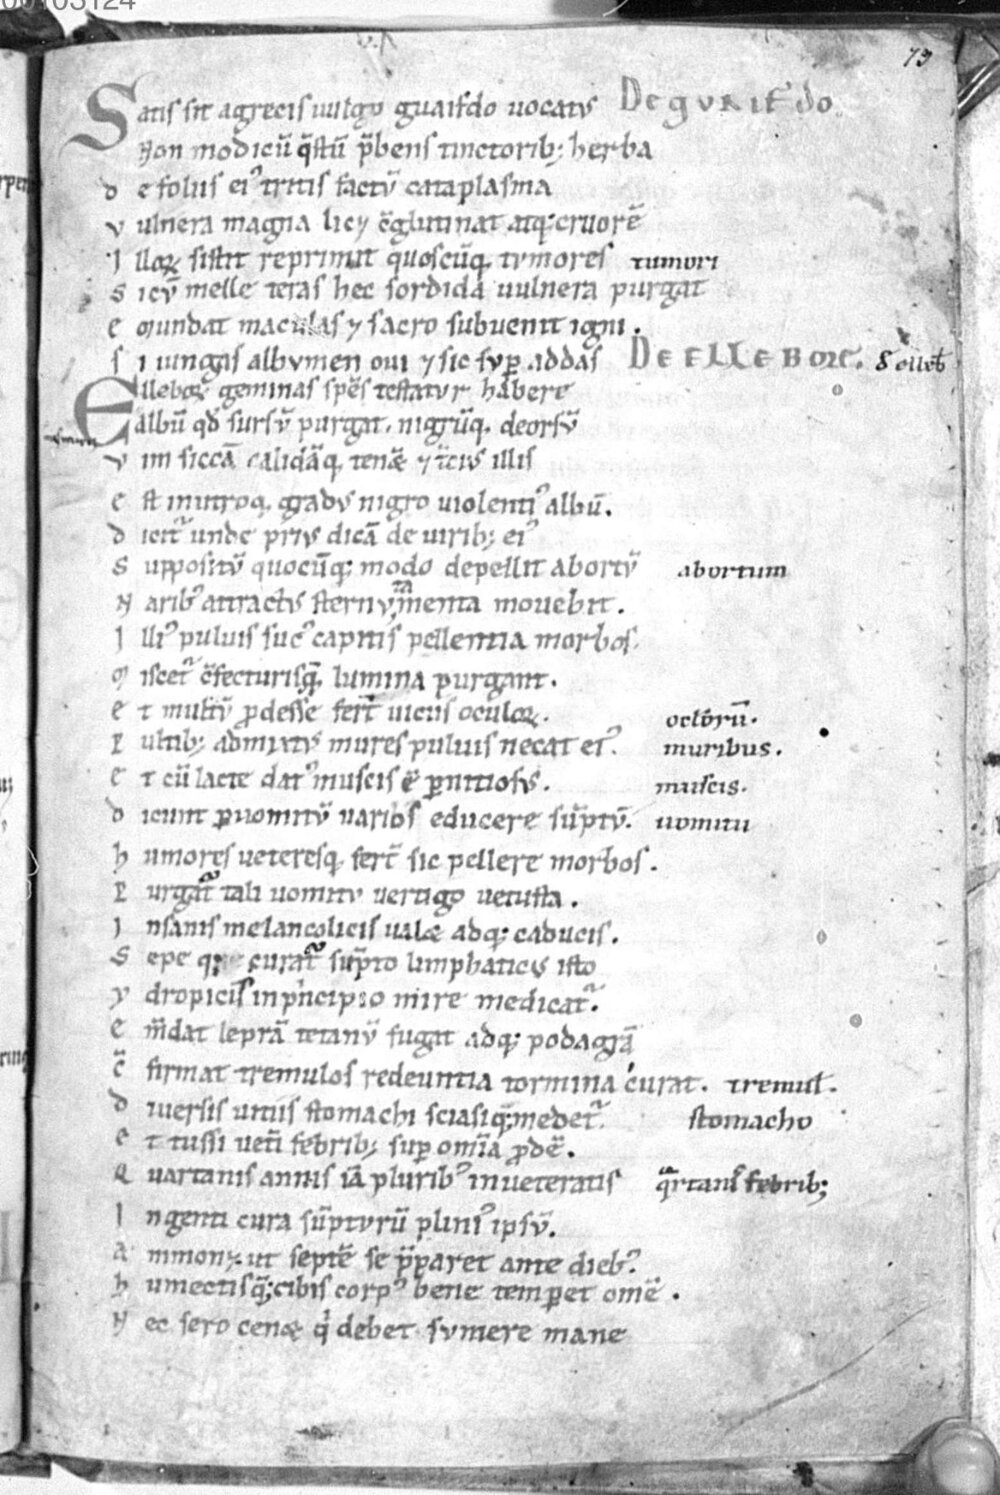 00103124
79
Satis sit agrecis uulgo guaifdo uocatus De guaifdo.
Non modicū q̄stū p̄bens tinctorib; herba
de foliis ei᾽ tritis factū cataplasma
vulnera magna lic& c̄glutinat atq; cruorē
Illoꝝ sistit reprimit quoscūq, tumores tumori
Sicū melle teras hec sordida uulnera purgat
emundat maculas ⁊ sacro subuenit igni.
si iungas albumen oui ⁊ sic sup addas De ellebore. ellebͦ
Elleboꝝ geminas spēs testatur habere
albū qd̄ sursū purgat, nigrūq, deorsū
vim siccā calidāq, tenēt ⁊ t̄cius illis
est in utroq, gradus nigro uiolenti᾽ albū.
dicit᾽ unde prius dicā de uirib; ei᾽
Suppositū quocūq; modo depellit abortū abortum
Narib᾽ attractus sternutamenta mouebit.
Illi᾽ puluis suc᾽ capitis pellentia morbos.
Miscet᾽ c̄fecturisq̄, lumina purgant.
et multū ꝓdesse fert᾽ uiciis oculoꝝ. oculorū.
Pultib; admixtus mures puluis necat ei᾽. muribus.
et cū lacte dat᾽ muscis ē pernitiosus. muscis.
dicunt per uomitū uarios educere sūptū. uomitu
humores ueteresq, fert᾽ sic pellere morbos.
Purgat᾽ tali uomitu uertigo uetusta.
Insanis melancolicis ualet adq; caducis.
Sepe curat᾽ sūpto limphaticus isto
ydropicis in principio mire medicat᾽.
em̄dat leprā tetanū fugat adq; podagrā
c̄firmat tremulos redeuntia tormina curat. tremul̄.
diuersis uitiis stomachi sciasiq; medet᾽. stomacho
et tussi uet̄i febrib; sup om̄ia ꝓdē.
Quartanis annis iā plurib᾽ inueteratis q̄rtanis febrib;
Ingenti cura sūpturū plini᾽ ipsū.
ammon& ut septē se p̄paret ante dieb᾽.
humectisq̄; cibis corp᾽ bene temperet omē.
Nec sero cenet q̇ debet sumere mane